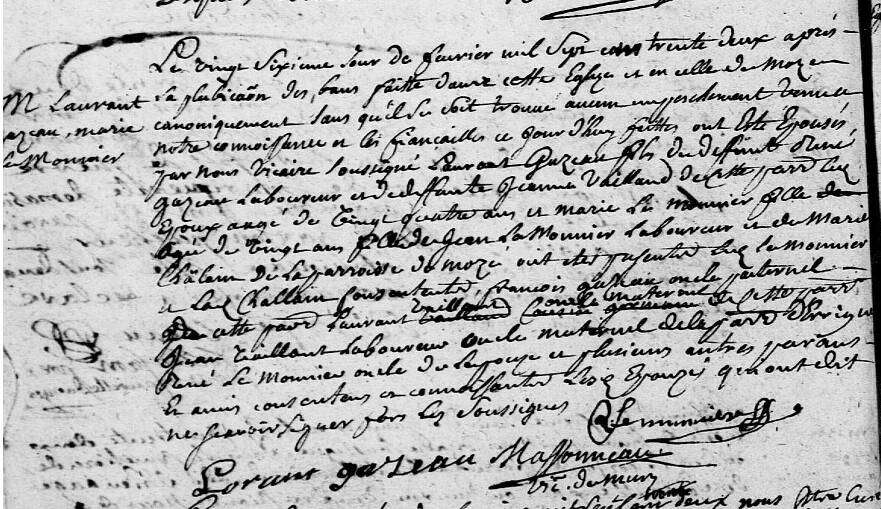 Le vingt sixieme jour de fevrier mil sept cent trente deux apres
M Laurant
gazeau, marie
le Monnier
la publicãon des bans faitte dans cette Eglize et en celle de Mozé
canoniquement sans qu'il se soit trouvé aucun empeschement venu a
notre connoissance et les fiancailles ce jour d'huy fettes ont Esté Epousés
par nous Vicaire soussigné Laurant Gazeau fils de deffunt René
gazeau Laboureur et de deffunte Jeanne Vailland de cette parr
Epoux aagé de vingt quatre ans et marie Le Monnier fille de
agée de vingt ans fille de Jean Le Monnier Laboureur et de Marie
Châlain de la parroisse de Mozé ont été presents le Monnier
et la Challain consentents, francois gazeau oncle paternel
de cette parr Laurant Vaillant oncle maternel de cette parr
Jean Vaillant Laboureur oncle maternel de la parr
René Le Monnier oncle de l'epouse et plusieurs autres parans
Et amis consentens et connoissants Epouzés qui ont dit
ne scavoir signer fors les soussignes
le munniere
Lorant gazeau Massonneau
vic. de murs
deux nous